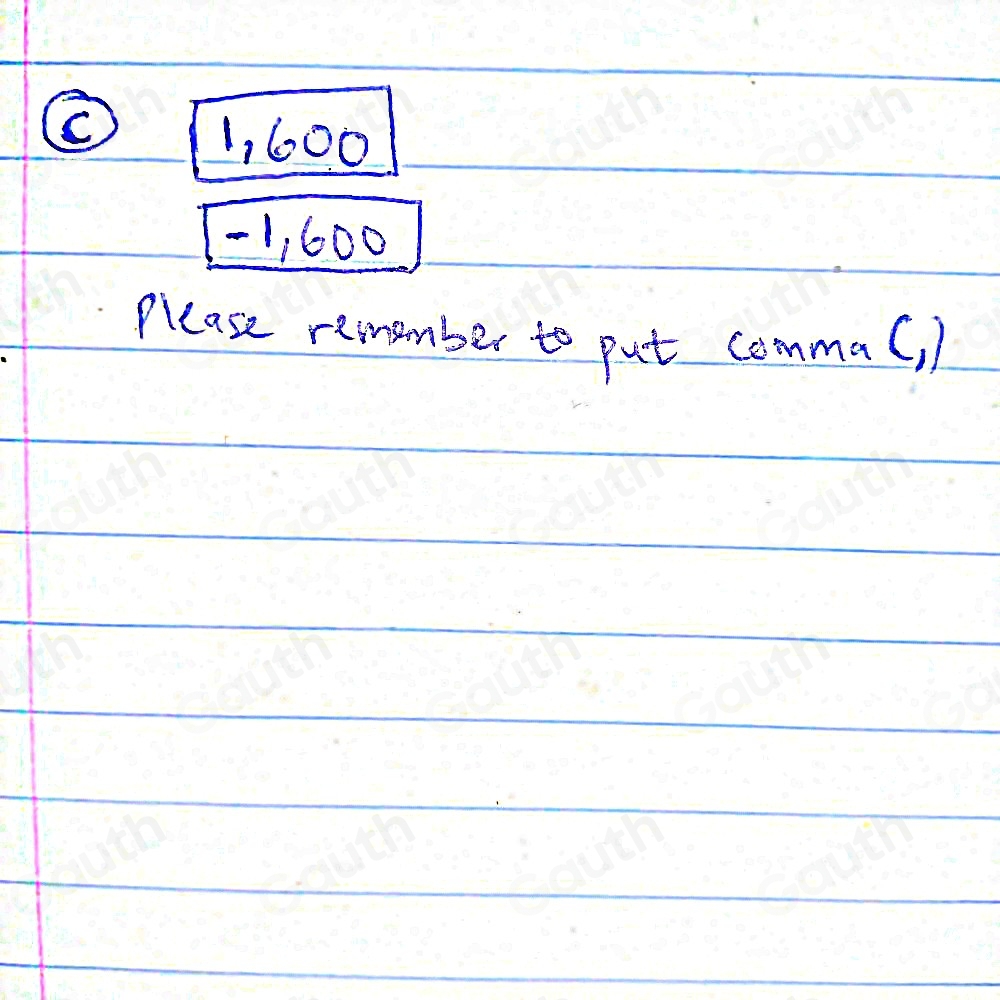 C 1,600
-1,600
Please remember to put comma (,)